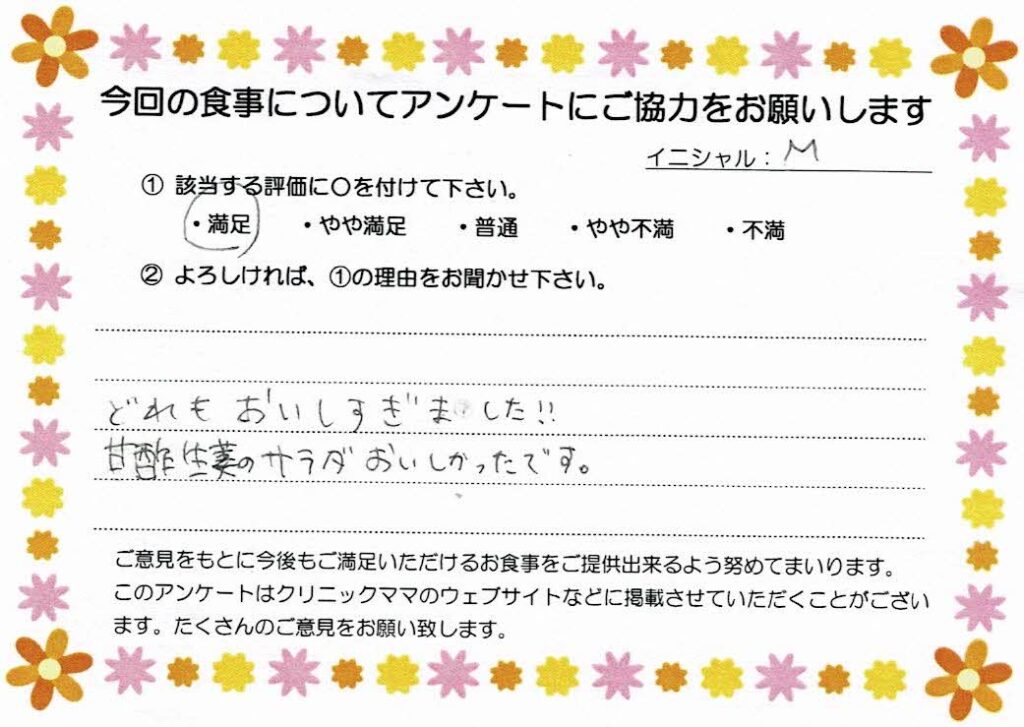 今回の食事についてアンケートにご協力をお願いします
イニシャル：M
① 該当する評価に〇を付けて下さい。
・満足 ・やや満足 ・普通 ・やや不満 ・不満
② よろしければ、①の理由をお聞かせ下さい。
どれもおいしすぎました!!
甘酢生姜のサラダおいしかったです。
ご意見をもとに今後もご満足いただけるお食事をご提供出来るよう努めてまいります。
このアンケートはクリニックママのウェブサイトなどに掲載させていただくことがござい
ます。たくさんのご意見をお願い致します。